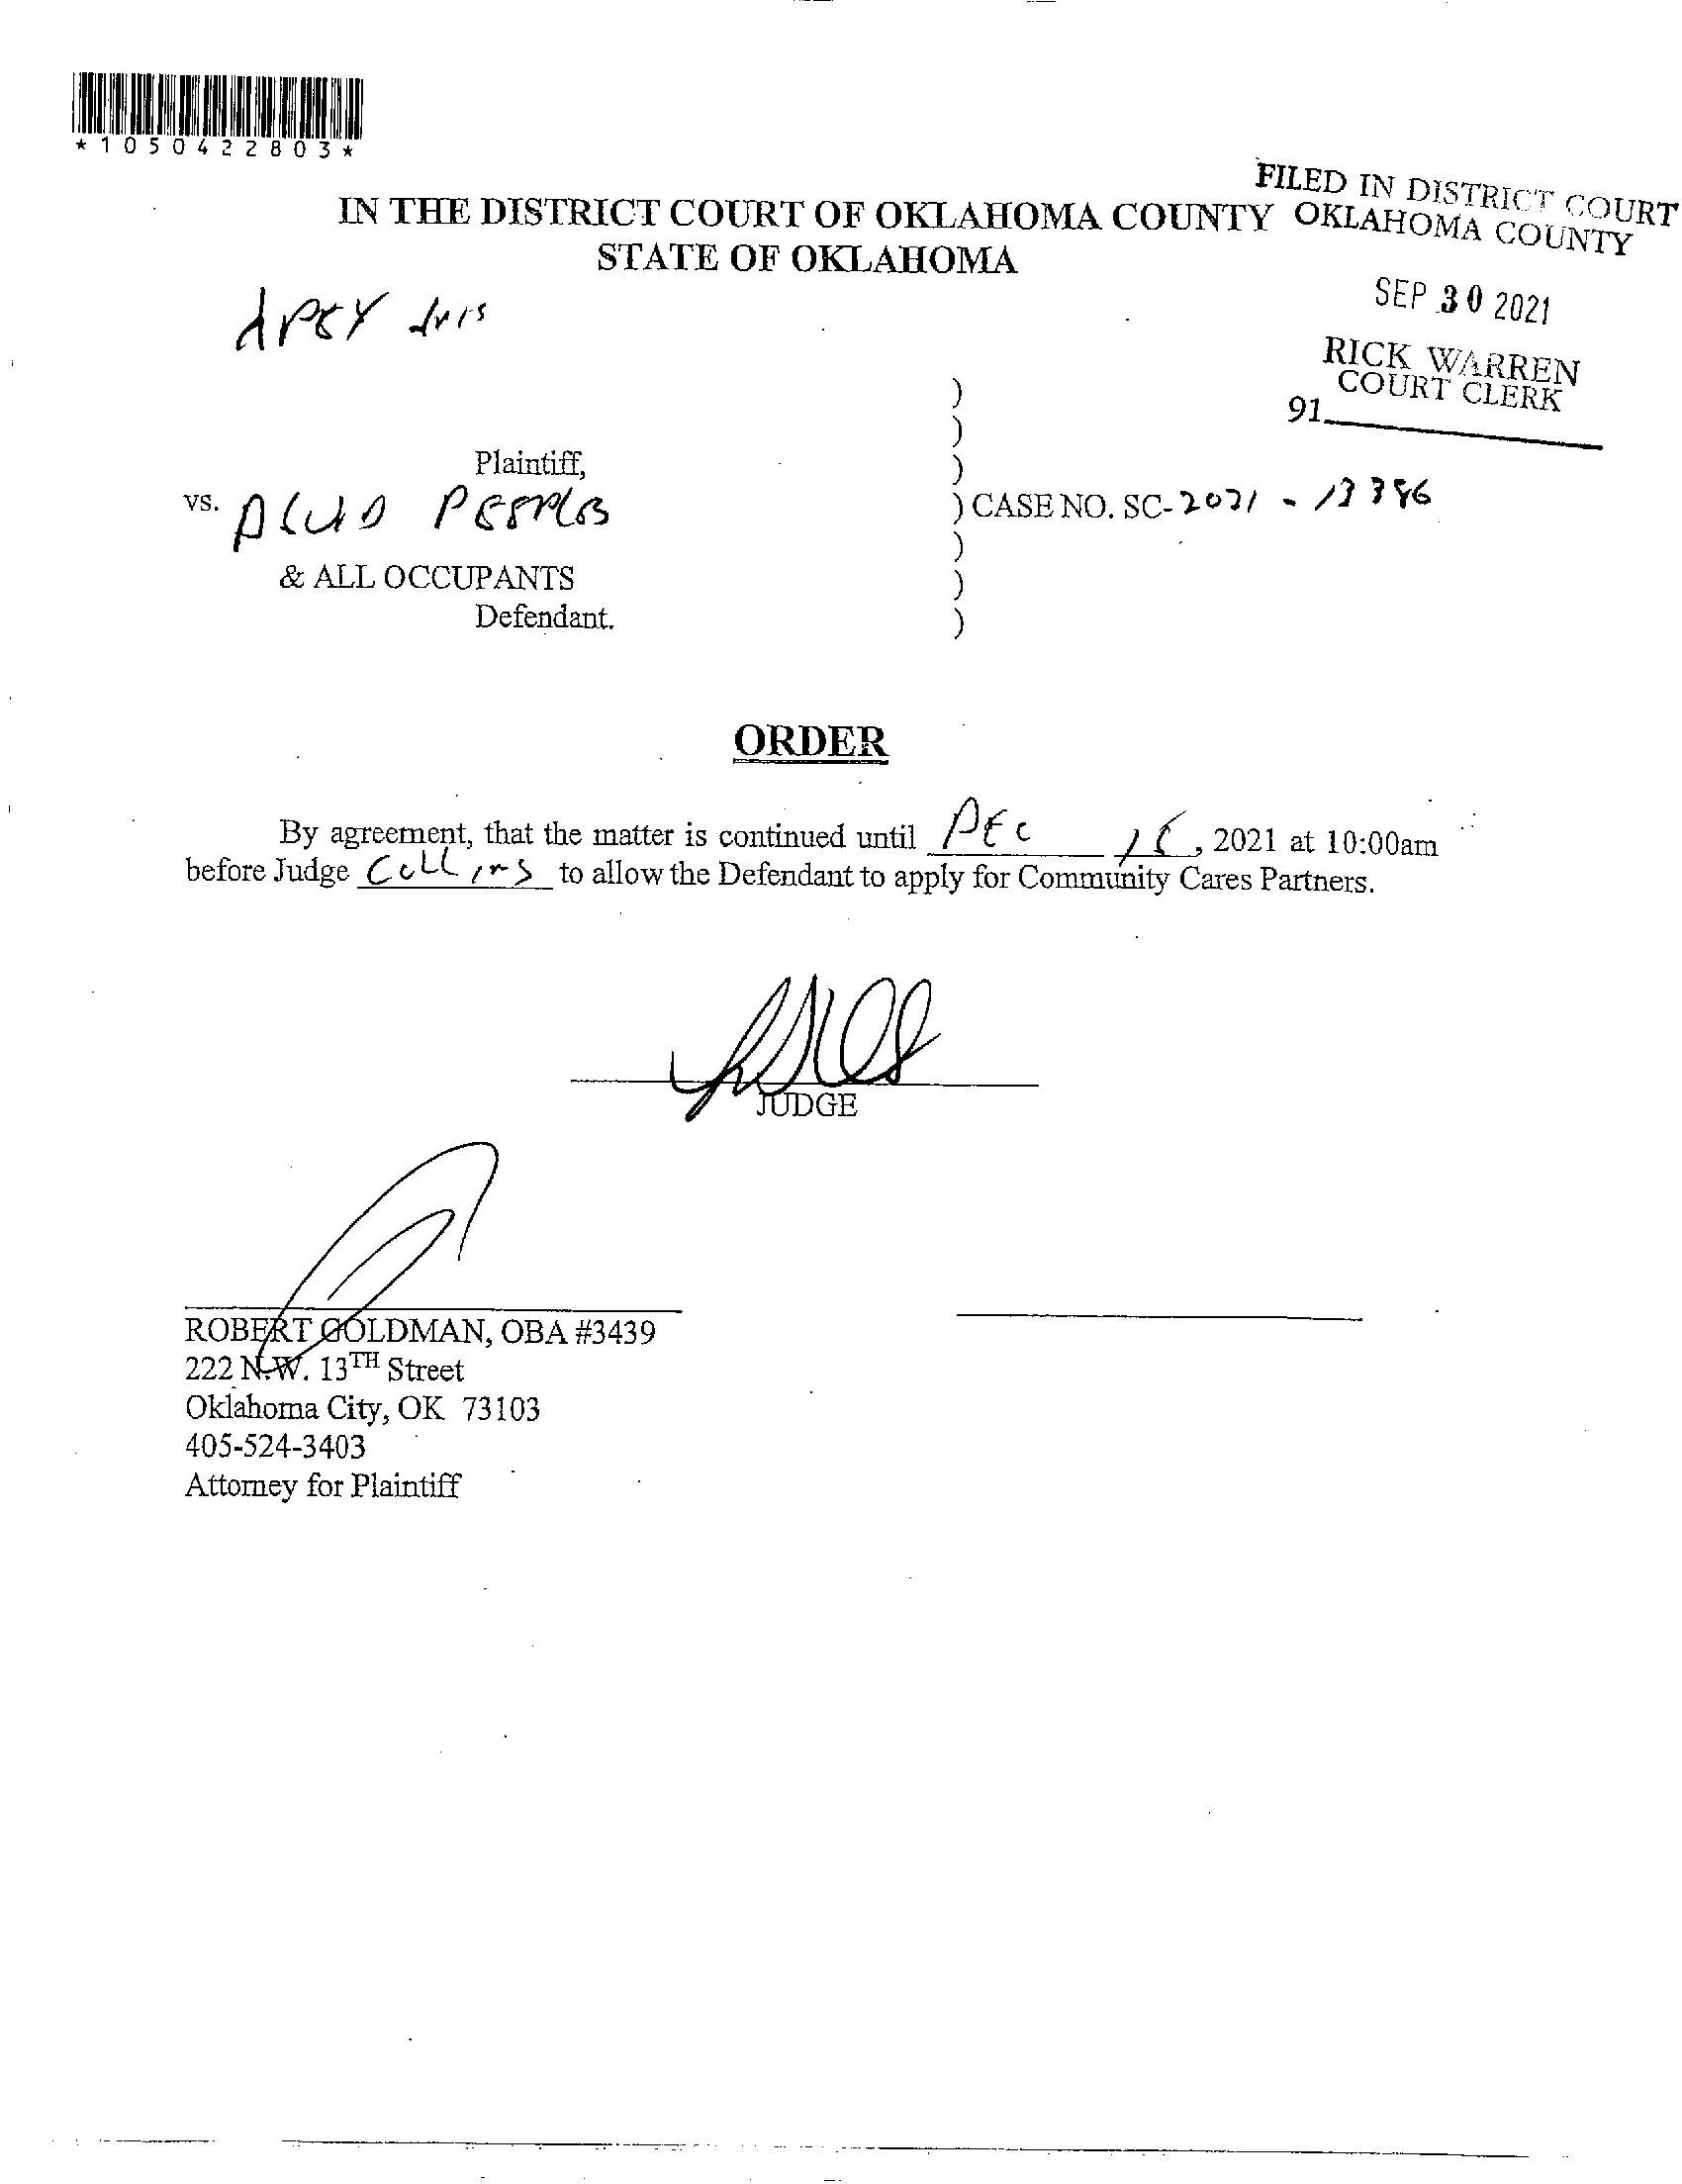 *1050422803*
FILED IN DISTRICT COURT
OKLAHOMA COUNTY
IN THE DISTRICT COURT OF OKLAHOMA COUNTY
STATE OF OKLAHOMA
SEP 30 2021
RICK WARREN
COURT CLERK
91
APEX
Plaintiff,
vs. PEEPLES
) CASE NO. SC-2021 - 13386
& ALL OCCUPANTS
Defendant.
ORDER
By agreement, that the matter is continued until DEC 16, 2021 at 10:00am
before Judge COLLINS to allow the Defendant to apply for Community Cares Partners.
JUDGE
ROBERT GOLDMAN, OBA #3439
222 N.W. 13TH Street
Oklahoma City, OK 73103
405-524-3403
Attorney for Plaintiff